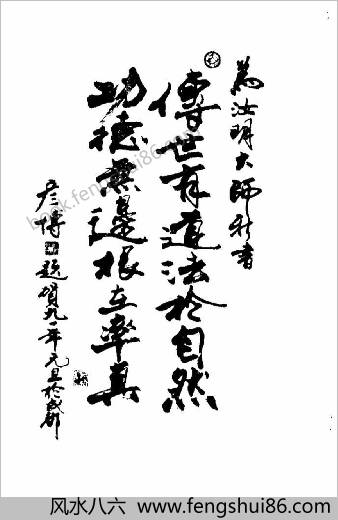 为汝明大师新書
傳世有道法於自然
功德無邊根在率真
彦博题賀九一年元旦於成都
book.fengshui86.com
风水八六 www.fengshui86.com